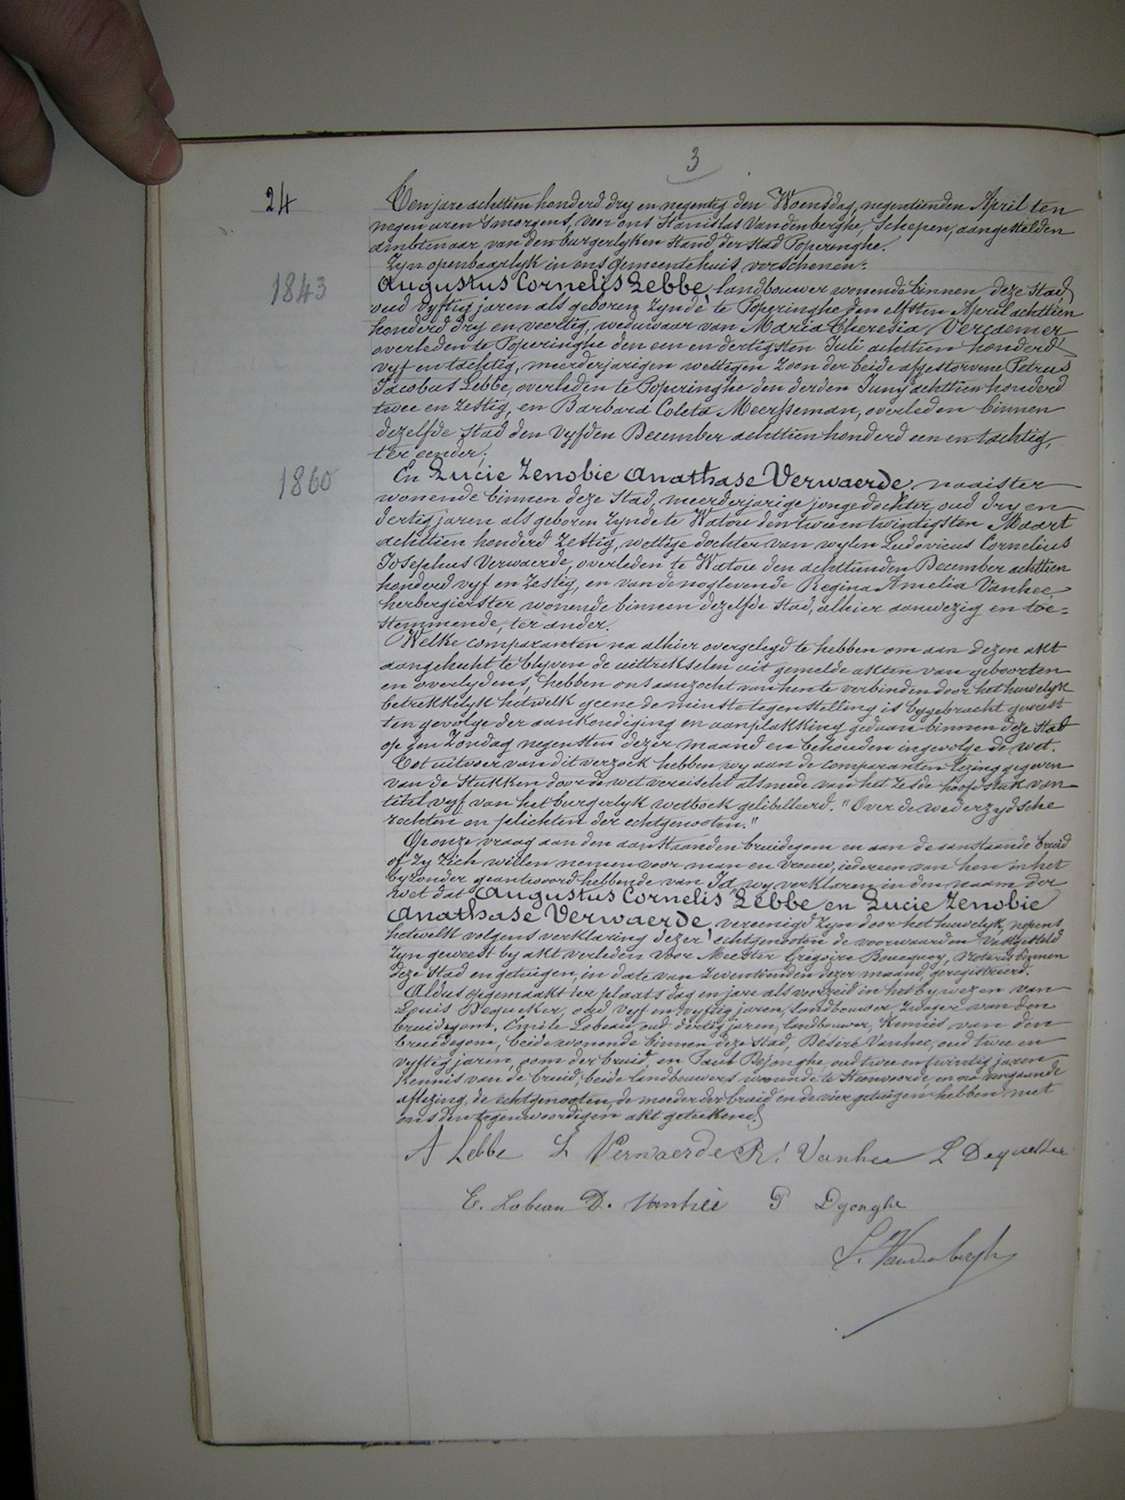 3
24
Ten jare achttien honderd dry en negentig den Woensdag, negentienden April ten
negen uren 's morgens, voor ons Stanislas Vandenberghe, Schepen, aangestelden
ambtenaar van den burgerlyken stand der stad Poperinghe.
Zyn openbaarlyk in ons gemeentehuis verschenen:
1843
Augustus Cornelis Lebbe, landbouwer wonende binnen deze Stad,
oud vyftig jaren als geboren zynde te Poperinghe den elfsten April achttien
honderd dry en veertig, weduwaar van Maria Theresia Vercaemer
overleden te Poperinghe den een en dertigsten Juli achttien honderd
vyf en tachtig, meerderjarigen wettigen zoon der beide afgestorvene Petrus
Jacobus Lebbe, overleden te Poperinghe den derden Juny achttien honderd
twee en zestig, en Barbara Coleta Meersseman, overleden binnen
dezelfde stad den vyfden December achttien honderd een en tachtig,
ter eender;
1860
En Lucie Zenobie Anathase Verwaerde, naaister
wonende binnen deze Stad, meerderjarige jongedochter, oud dry en
dertig jaren als geboren zynde te Watou den twee en twintigsten Maart
achttien honderd zestig, wettige dochter van wylen Ludovicus Cornelius
Josephus Verwaerde, overleden te Watou den achttienden December achttien
honderd vyf en zestig, en van de noglevende Regina Amelia Vanhee,
herbergierster wonende binnen dezelfde stad, alhier aanwezig en toe=
stemmende, ter ander.
Welke comparanten na alhier overgelegd te hebben om aan dezen akt
aangehecht te blyven de uittrekselen uit gemelde akten van geboorten
en overlydens, hebben ons aanzocht van hen te verbinden door het huwelyk
betrekkelyk hetwelk geene de minste tegenstelling is bygebracht geweest
ten gevolge der aankondiging en aanplakking gedaan binnen deze Stad
op den Zondag negensten dezer maand en behouden ingevolge de wet.
Tot uitvoer van dit verzoek hebben wy aan de comparanten lezing gegeven
van de stukken door de wet vereischt alsmede van het zesde hoofdstuk van
titel vyf van het burgerlyk wetboek gelibelleerd. "Over de wederzydsche
rechten en plichten der echtgenooten."
Op onze vraag aan den aanstaanden bruidegom en aan de aanstaande bruid
of zy zich willen nemen voor man en vrouw, iedereen van hen in het
byzonder geantwoord hebbende van Ja, wy verklaren in den naam der
wet dat Augustus Cornelis Lebbe en Lucie Zenobie
Anathase Verwaerde, vereenigd zyn door het huwelyk, nopens
hetwelk volgens verklaring dezer echtgenooten de voorwaarden vastgesteld
zyn geweest by akt verleden voor Meester Gregoire Boucquey, Notaris binnen
deze Stad en getuigen, in date van zeventienden dezer maand, geregistreerd.
Aldus opgemaakt ter plaats dag en jare als voorzeid in het bywezen van
Louis Dequeker, oud vyf en vyftig jaren, landbouwer, zwager van den
bruidegom, Emile Lebeau oud dertig jaren, landbouwer, Kennis van den
bruidegom, beide wonende binnen deze stad, Désiré Vanhee, oud twee en
vyftig jaren, oom der bruid, en Paul Dejonghe, oud twee en twintig jaren
kennis van de bruid, beide landbouwers wonende te Steenvoorde, en na voorgaande
aflezing, de echtgenooten, de moeder der bruid en de vier getuigen hebben met
ons den tegenwoordigen akt geteekend.
A Lebbe L Verwaerde R. Vanhee L Dequeker
E. Lebeau D. Vanhée P Dejonghe
S. Vandenberghe